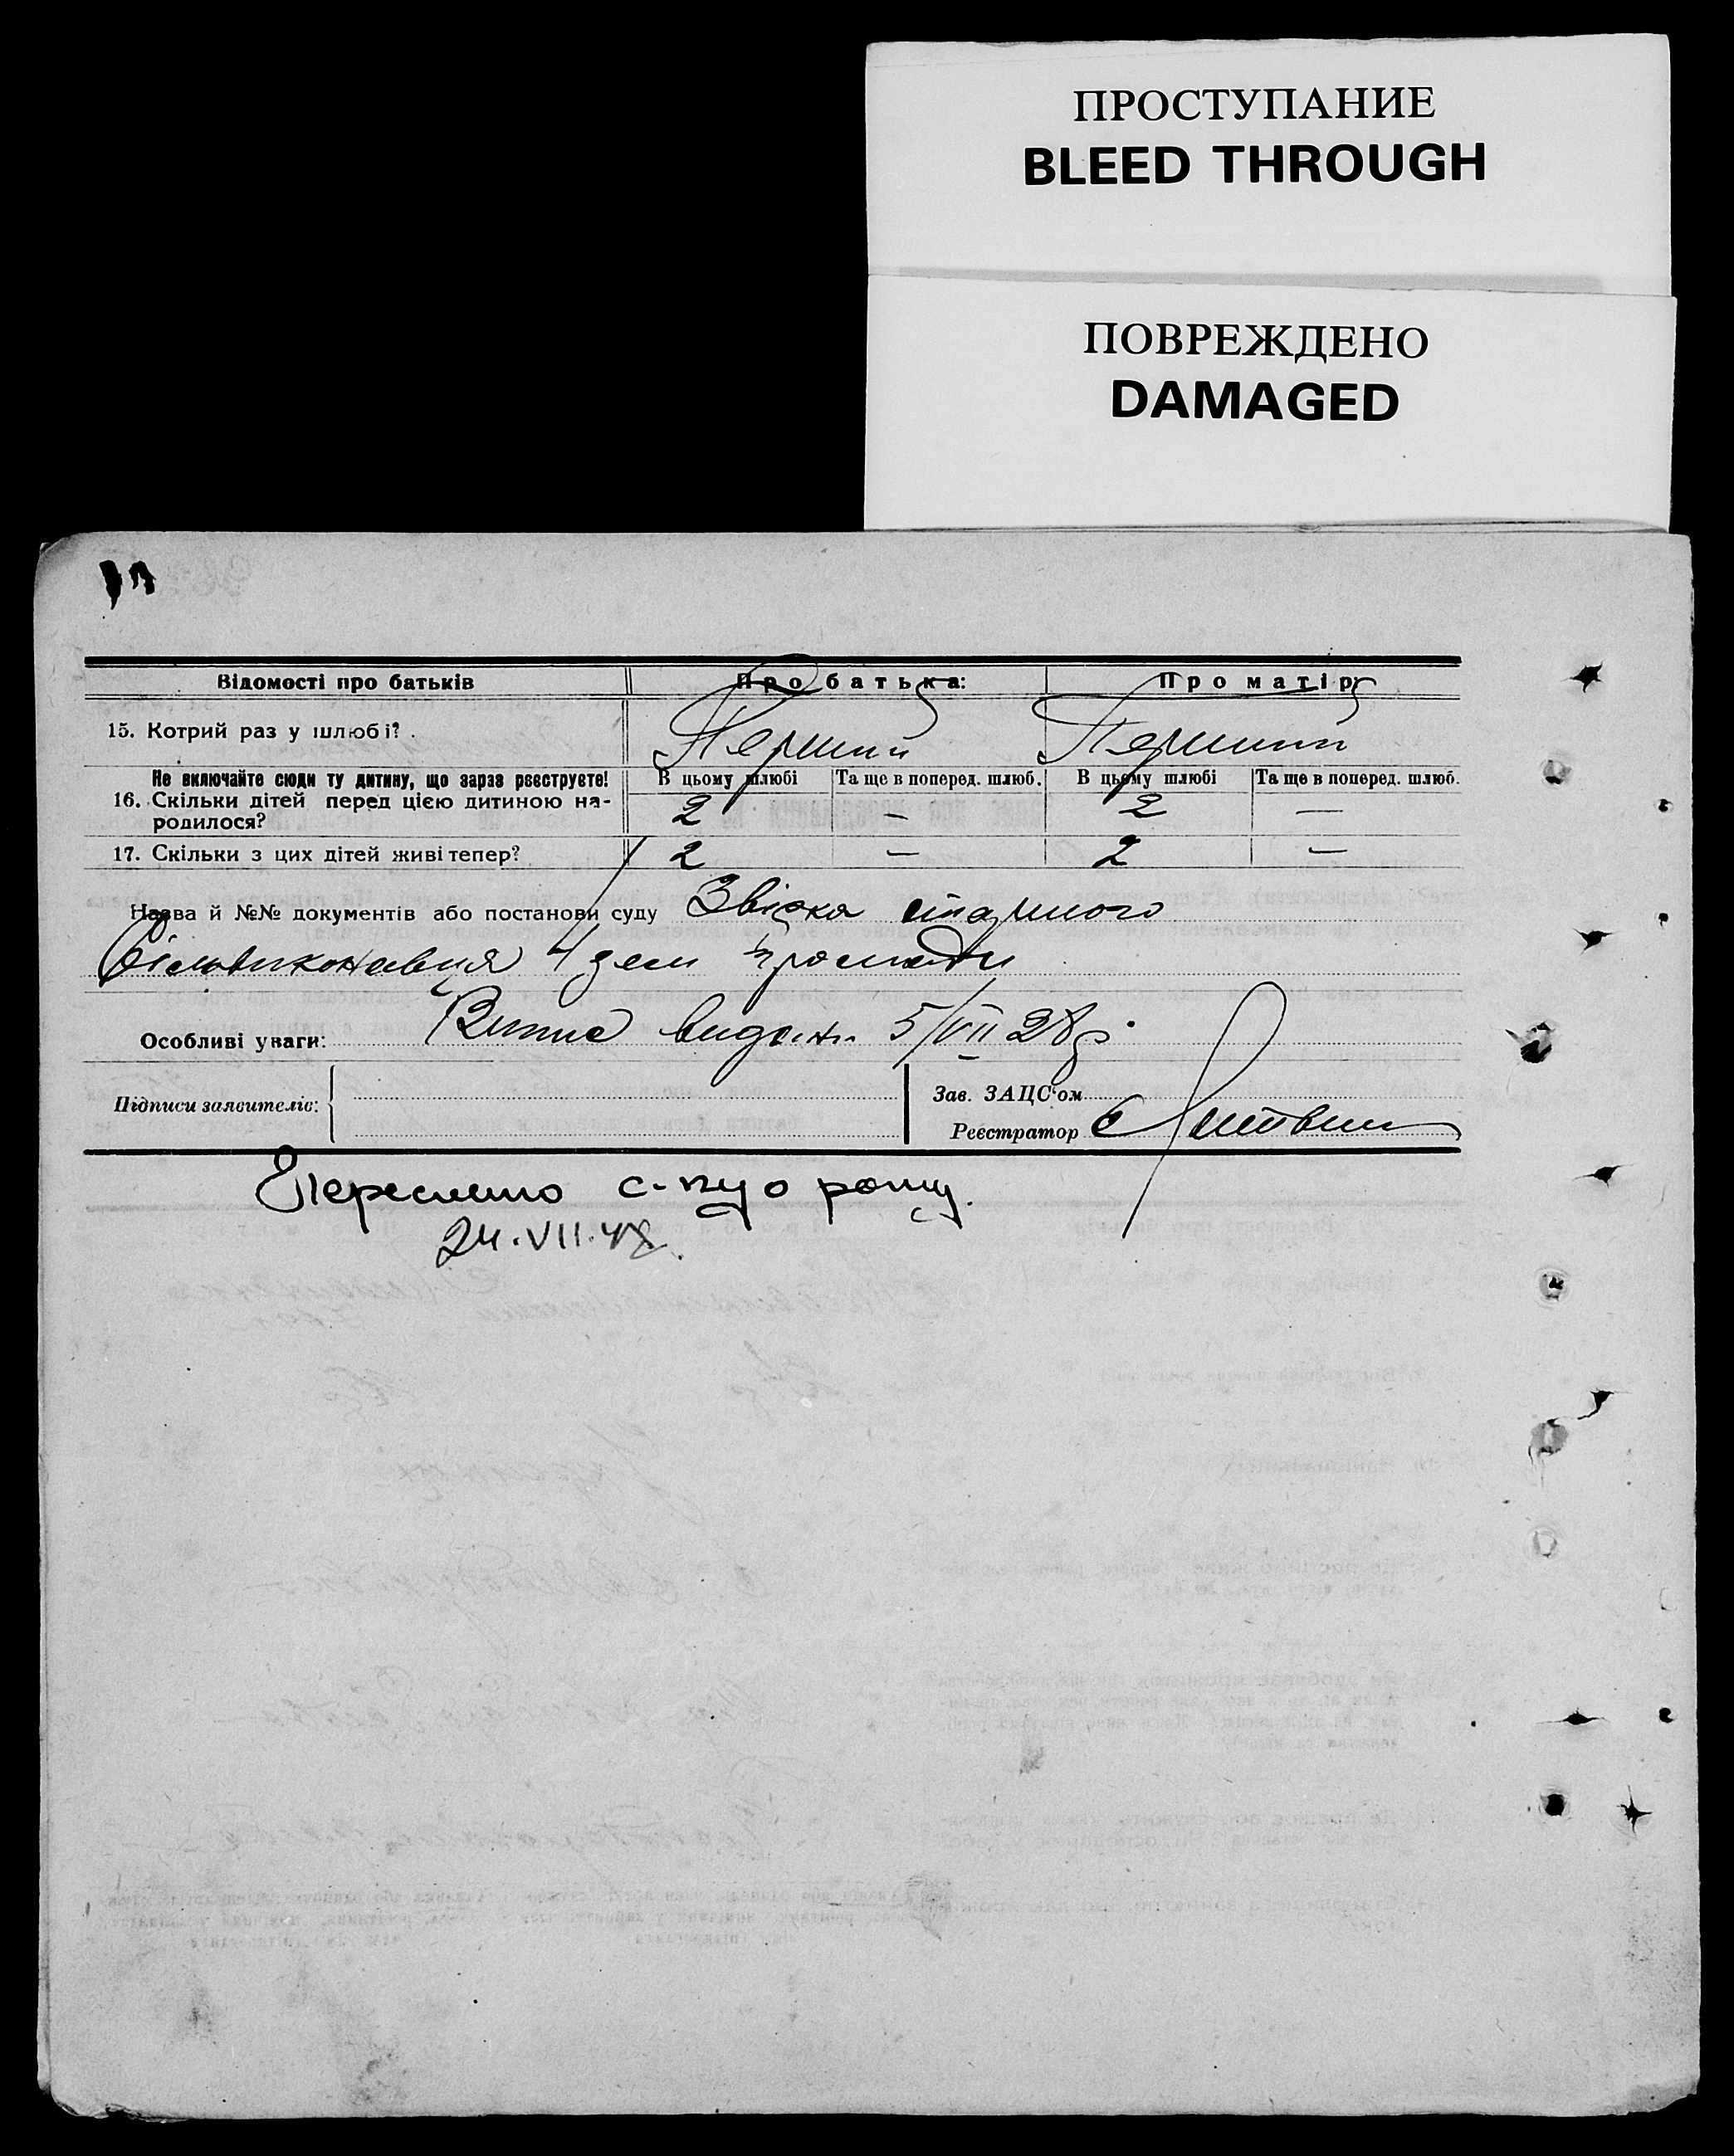 ПРОСТУПАНИЕ
BLEED THROUGH
ПОВРЕЖДЕНО
DAMAGED
Відомості про батьків Про батька: Про матір
15. Котрий раз у шлюбі? . Перший Перший
Не включайте сюди ту дитину, що зараз реєструєте! В цьому шлюбі Та ще в поперед. шлюб. В цьому шлюбі Та ще в поперед. шлюб.
16. Скільки дітей перед цією дитиною на- 2 — 2 —
родилося?
17. Скільки з цих дітей живі тепер? 2 — 2 —
Назва й №№ документів або постанови суду Звідка старшого
сільвиконавця 4 зем громади
Особливі уваги: видана 5/VII 28р.
Підписи заявителів:
Зав. ЗАЦС'ом
Реєстратор Литвин
24.VII.48.